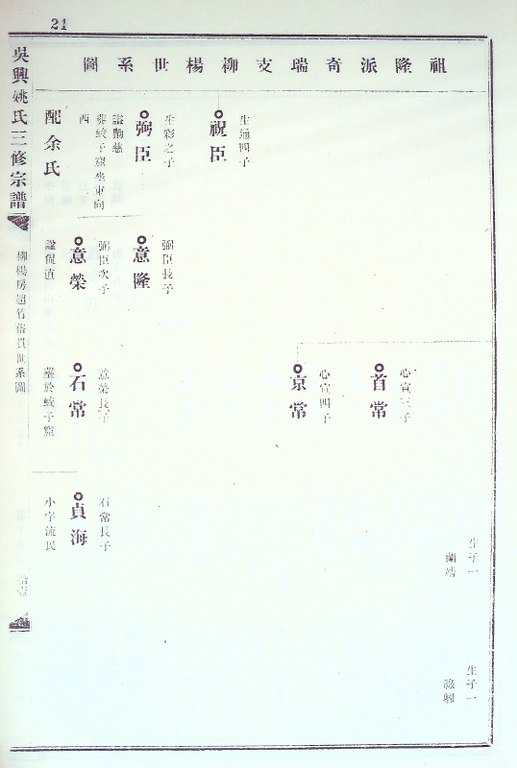 21
祖隆派奇瑞支柳楊世系圖
生子一
蘭
生子一
首常
心宣三子
京常
心宣四子
祝臣
生通四子
弼臣
生彩之子
諡勤慈
葬蛟子窟坐東向
西
配余氏
意隆
弼臣長子
意榮
弼臣次子
諡侃直
石常
意榮長子
墓於蛟子窟
貞海
石常長子
小字流民
吳興姚氏三修宗譜
柳楊房
世系圖